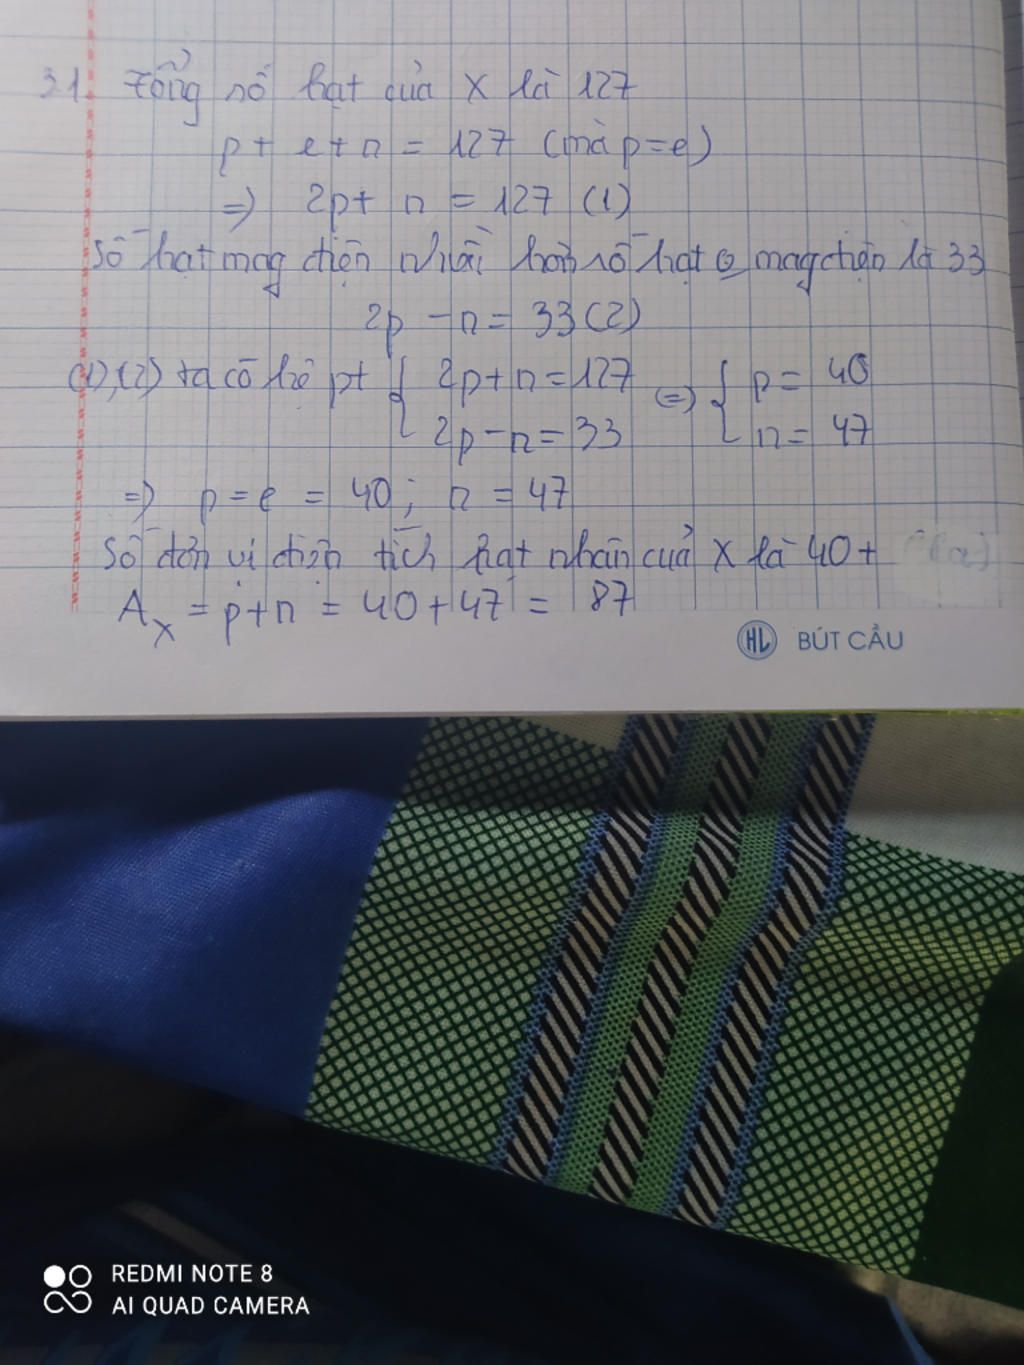 31. Tổng số hạt của X là 127
p + e + n = 127 (mà p = e)
=> 2p + n = 127 (1)
Số hạt mag điện nhiều hơn số hạt o mag điện là 33
2p - n = 33 (2)
(1), (2) ta có hệ pt { 2p + n = 127 (=) { p = 40
2p - n = 33 n = 47
=> p = e = 40; n = 47
Số đơn vị điện tích hạt nhân của X là 40+
Aₓ = p + n = 40 + 47 = 87
HL BÚT CẦU
REDMI NOTE 8
AI QUAD CAMERA